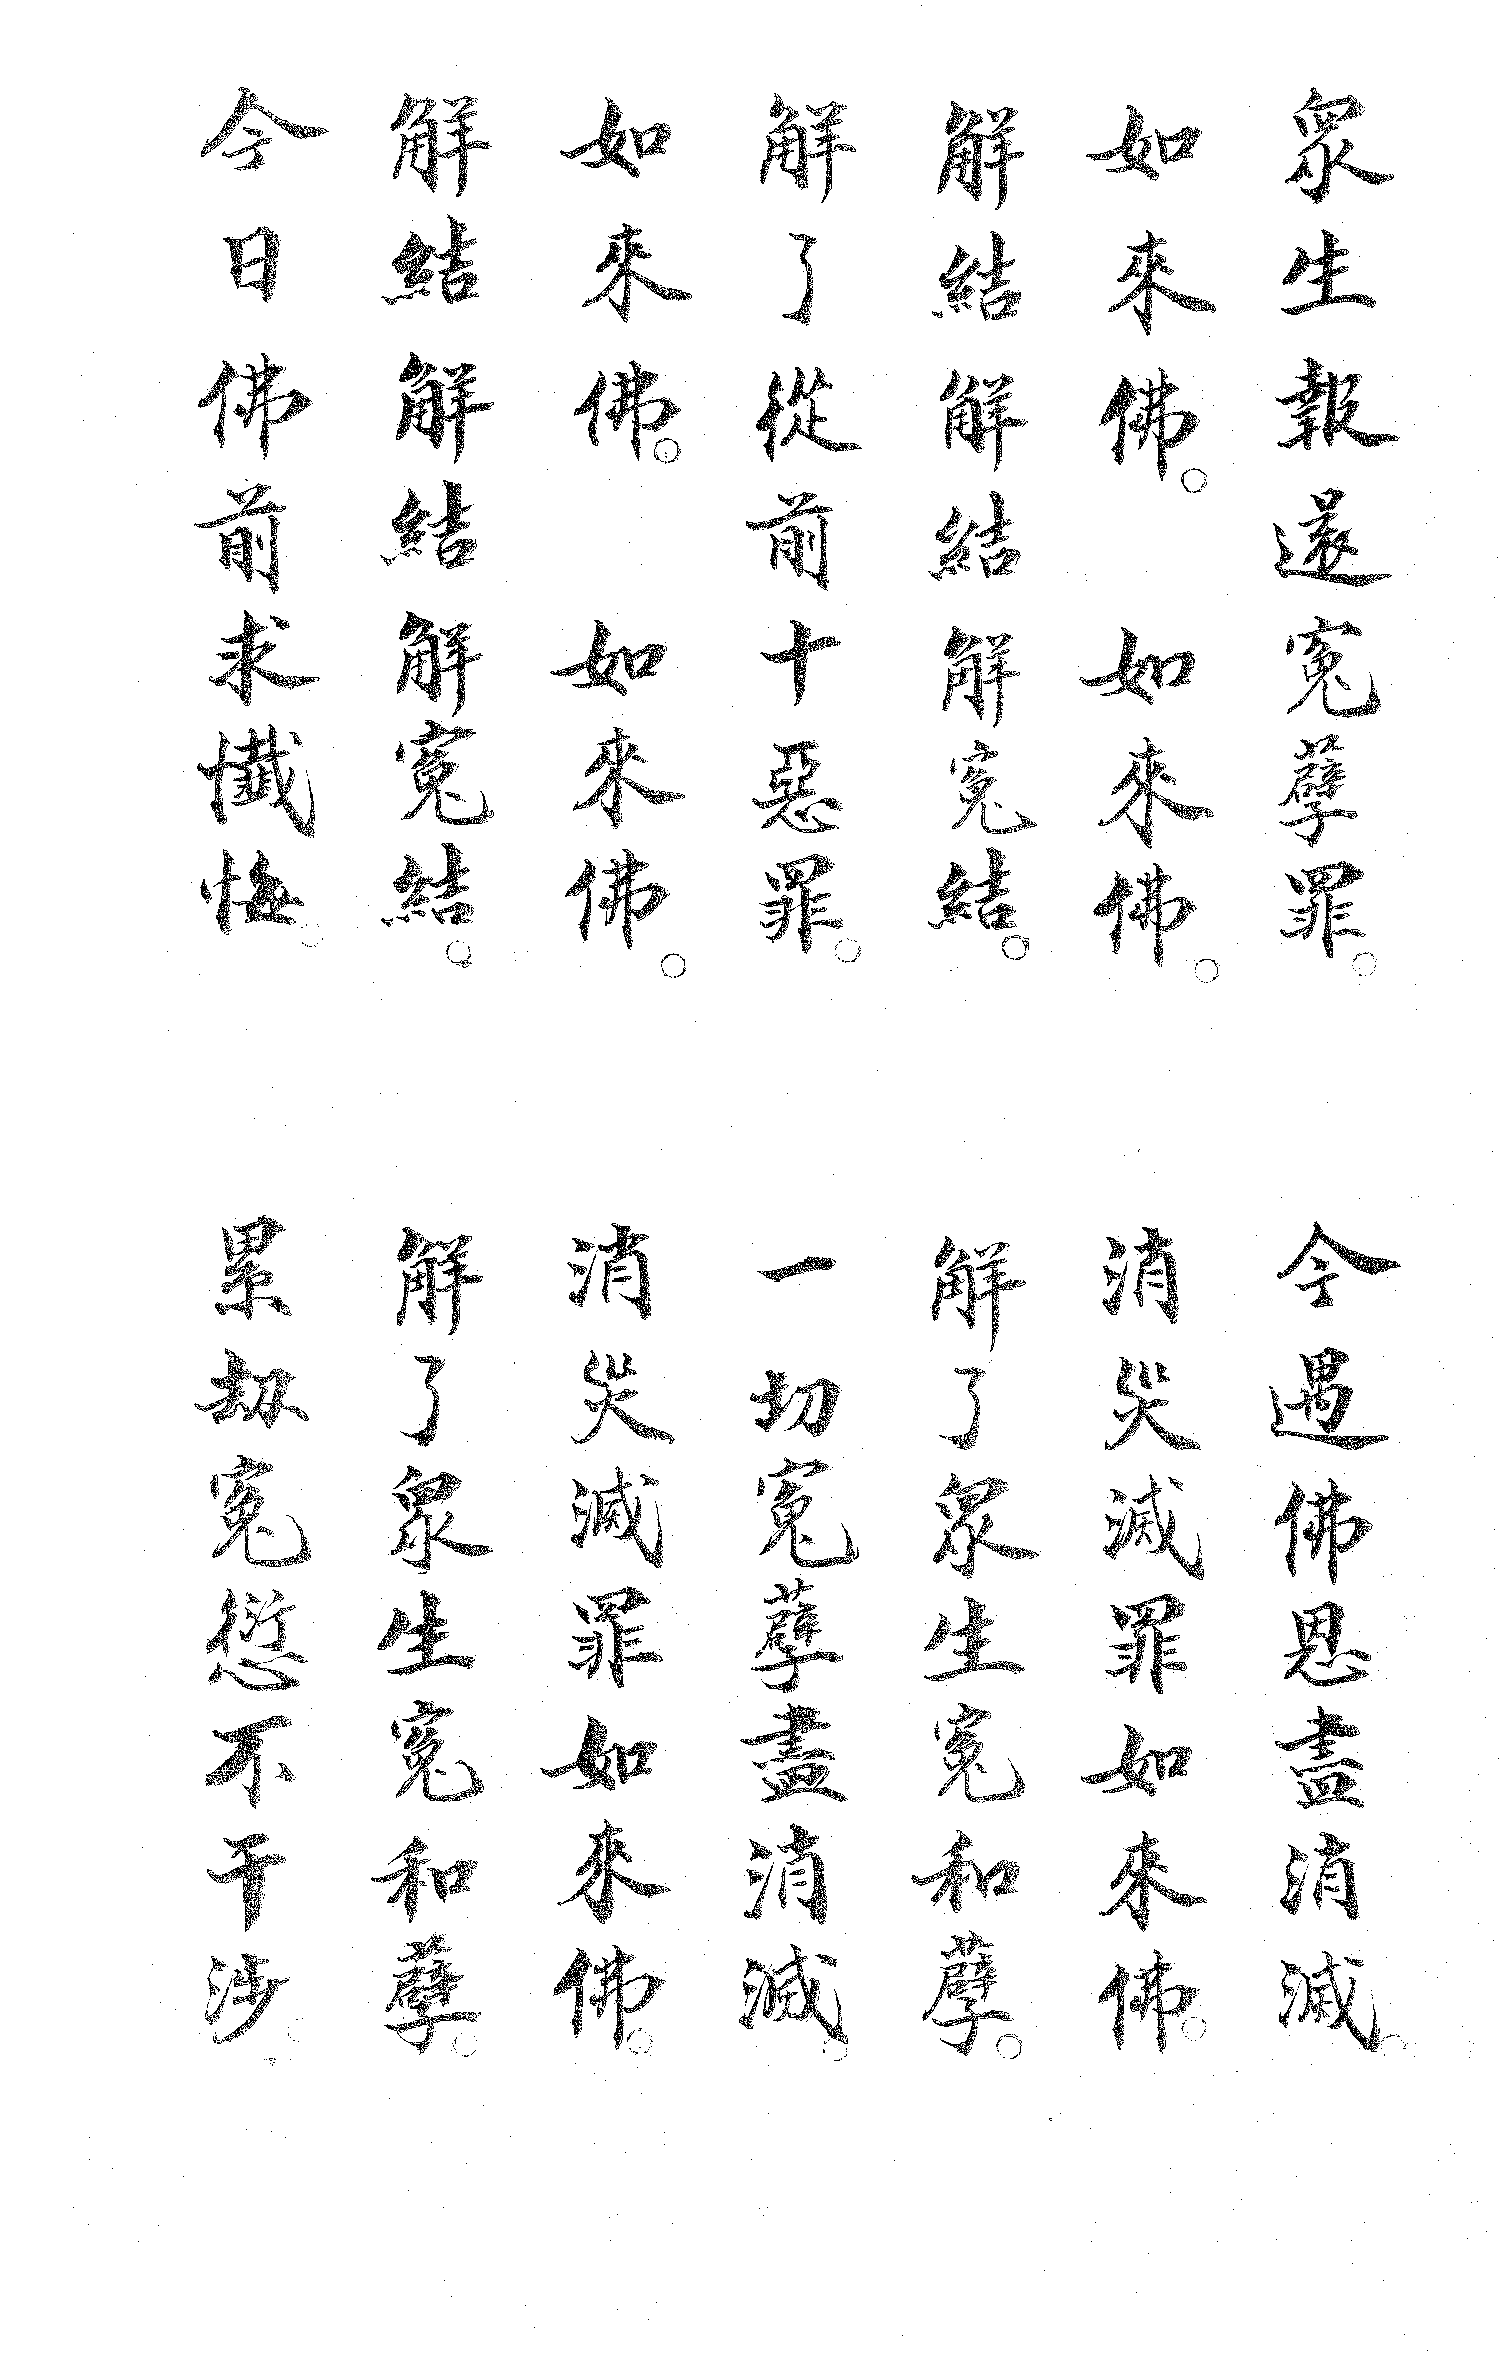 眾生報還寃孽罪。
今遇佛恩盡消滅。
如來佛。　如來佛。
消災滅罪如來佛。
解結解結解寃結。
解了眾生寃和孽。
解了從前十惡罪。
一切寃孽盡消滅。
如來佛。　如來佛。
消災滅罪如來佛。
解結解結解寃結。
解了眾生寃和孽。
今日佛前求懺悔。
累劫寃愆不干涉。